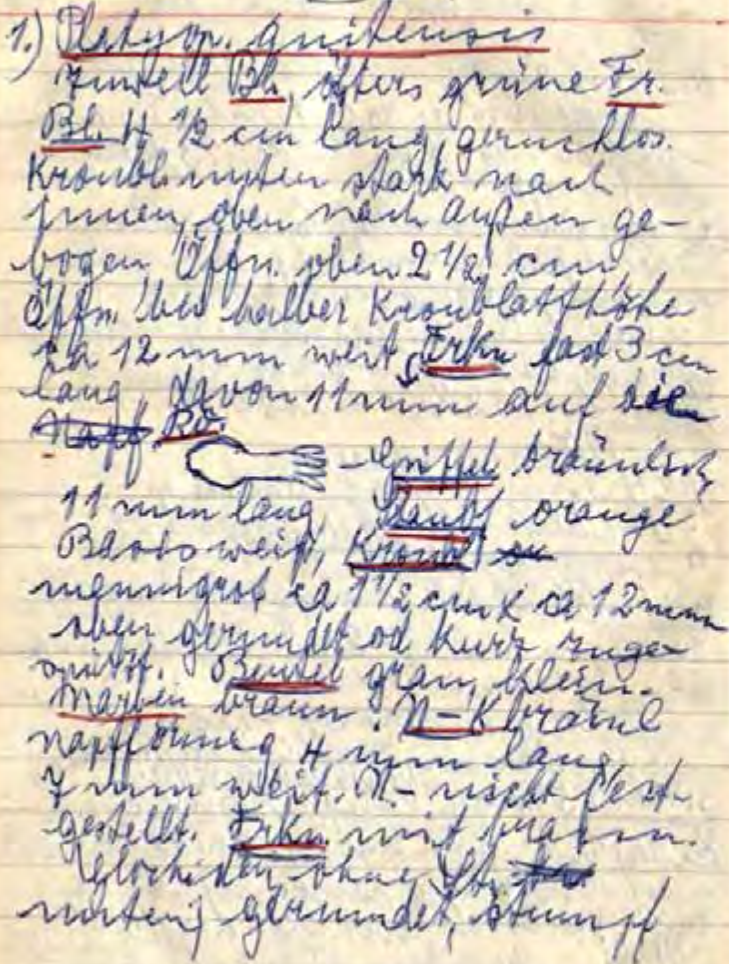 1.) Platyop. quitensis
Bl., öfters grüne Fr.
Bl. 4 1/2 cm lang, geruchlos.
Kronbl. unten stark nach
innen, oben nach außen ge-
bogen Öffn. oben 2 1/2 cm,
Öffn. bei halber Kronblatthöhe
ca 12 mm weit, Frkn fast 3 cm
lang, davon 11 mm auf die
Napf Rö.
- Griffel bräunlich
11 mm lang, Staubf orange
Basis weiß, Kronbl
mennigrot ca 1 1/2 cm x ca 12 mm
oben gerundet od kurz zuge-
spitzt. Beutel grau, klein.
Narben braun. N-K
napfförmig 4 mm lang
7 mm weit. N.- nicht fest-
gestellt. Frkn. mit braun.
Glochiden, ohne St.
unten gerundet, stumpf